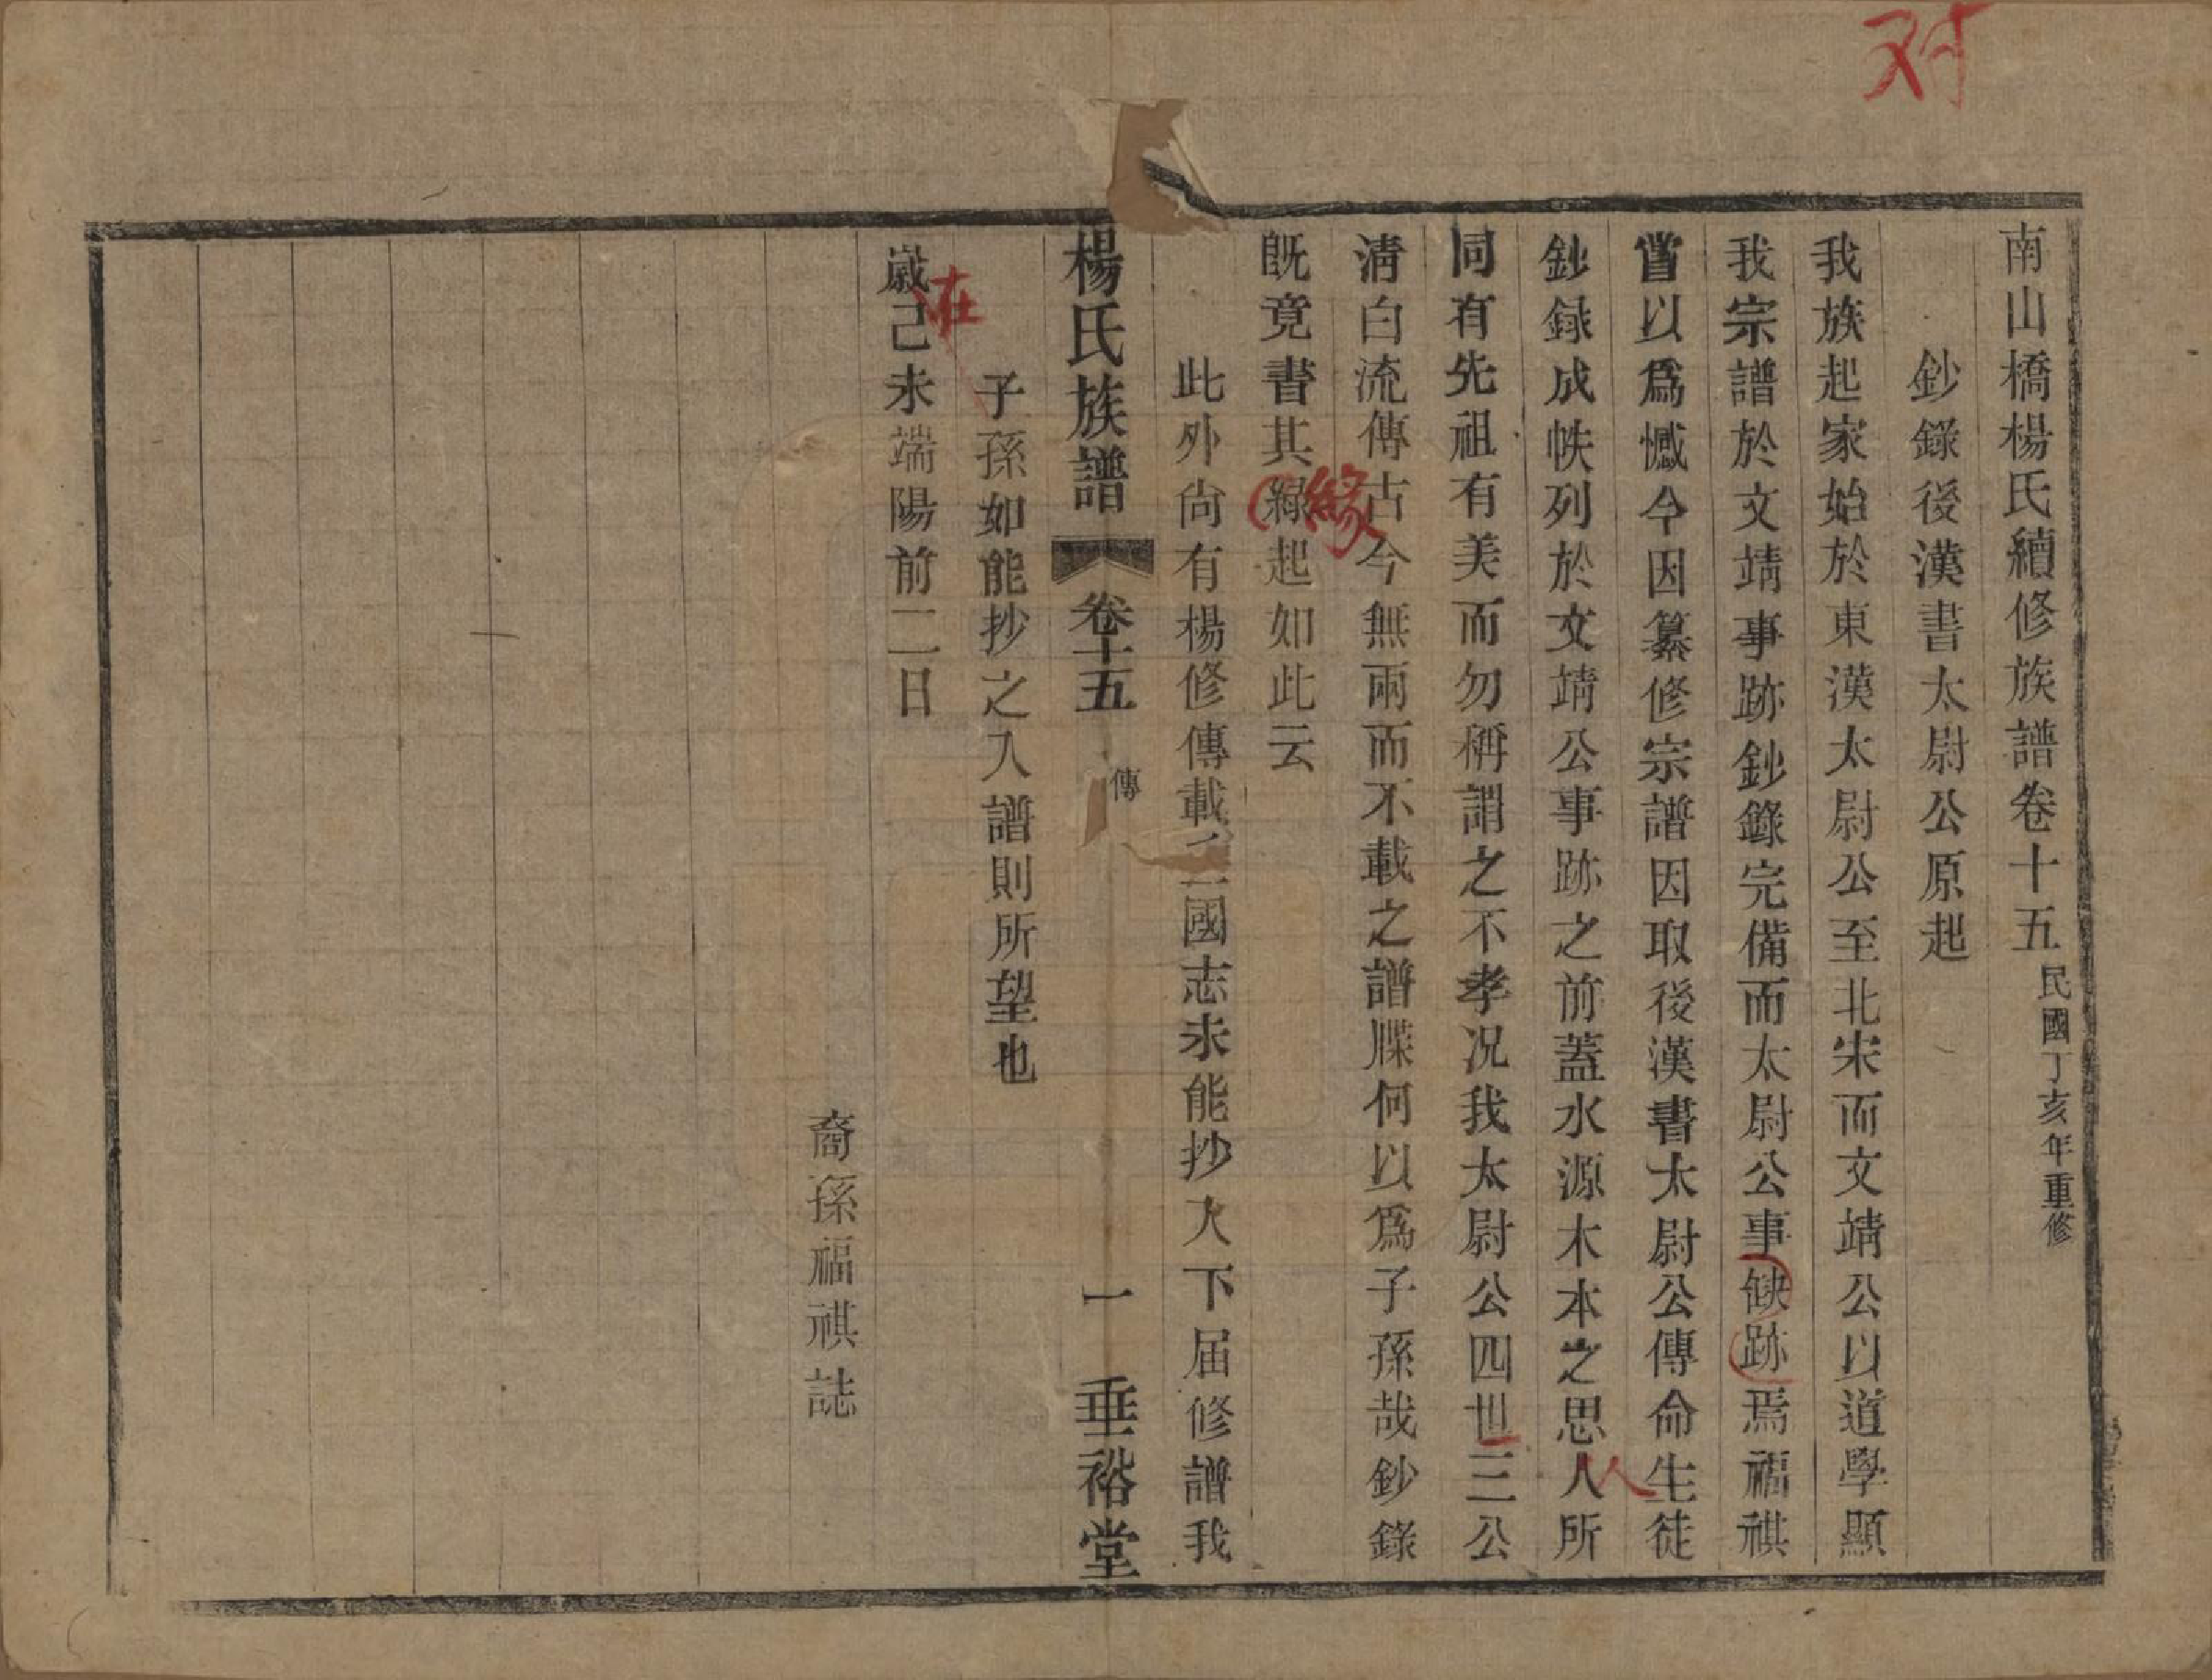 对
南山橋楊氏續修族譜卷十五 民國丁亥年重修
鈔錄後漢書太尉公原起
我族起家始於東漢太尉公至北宋而文靖公以道學顯
我宗譜於文靖事跡鈔錄完備而太尉公事缺跡焉福祺
嘗以爲憾今因纂修宗譜因取後漢書太尉公傳命生徒
鈔錄成帙列於文靖公事跡之前蓋水源木本之思人所
人
同有先祖有美而勿稱謂之不孝况我太尉公四世三公
清白流傳古今無兩而不載之譜牒何以爲子孫哉鈔錄
緣
既竟書其緑起如此云
此外尙有楊修傳載三國志未能抄入下届修譜我
楊氏族譜 卷十五 傳 一 垂裕堂
子孫如能抄之入譜則所望也
在
嵗己未端陽前二日
裔孫福祺誌